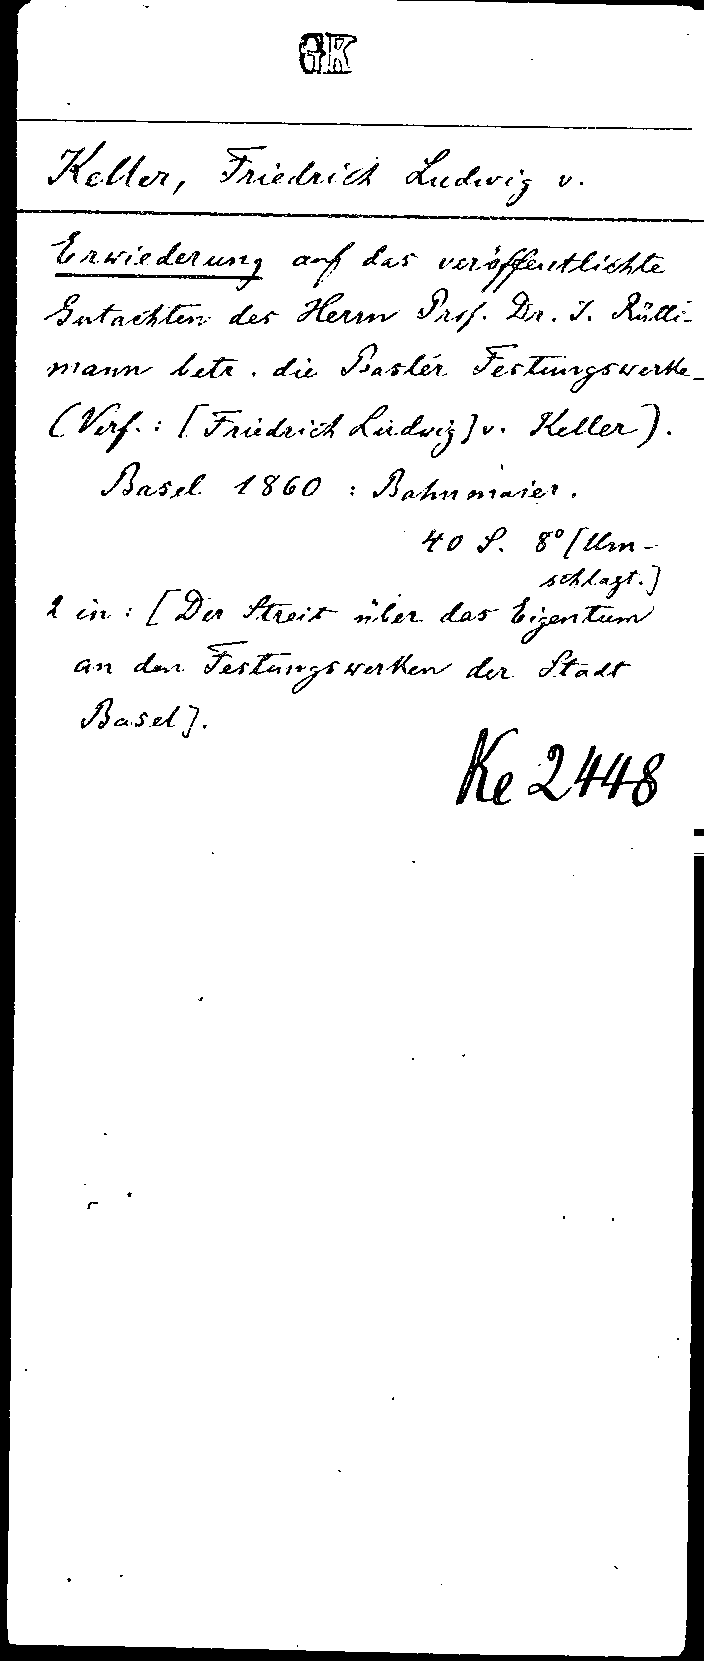 GK
Keller, Friedrich Ludwig v.
Erwiederung auf das veröffentlichte
Gutachten des Herrn Prof. Dr. J. Rütti-
mann betr. die Basler Festungswerke
(Verf.: [Friedrich Ludwig] v. Keller).
Basel 1860 : Bahnmaier.
40 S. 8° [Um-
schlagt.]
2 in: [Der Streit über das Eigentum
an den Festungswerken der Stadt
Basel].
Ke 2448